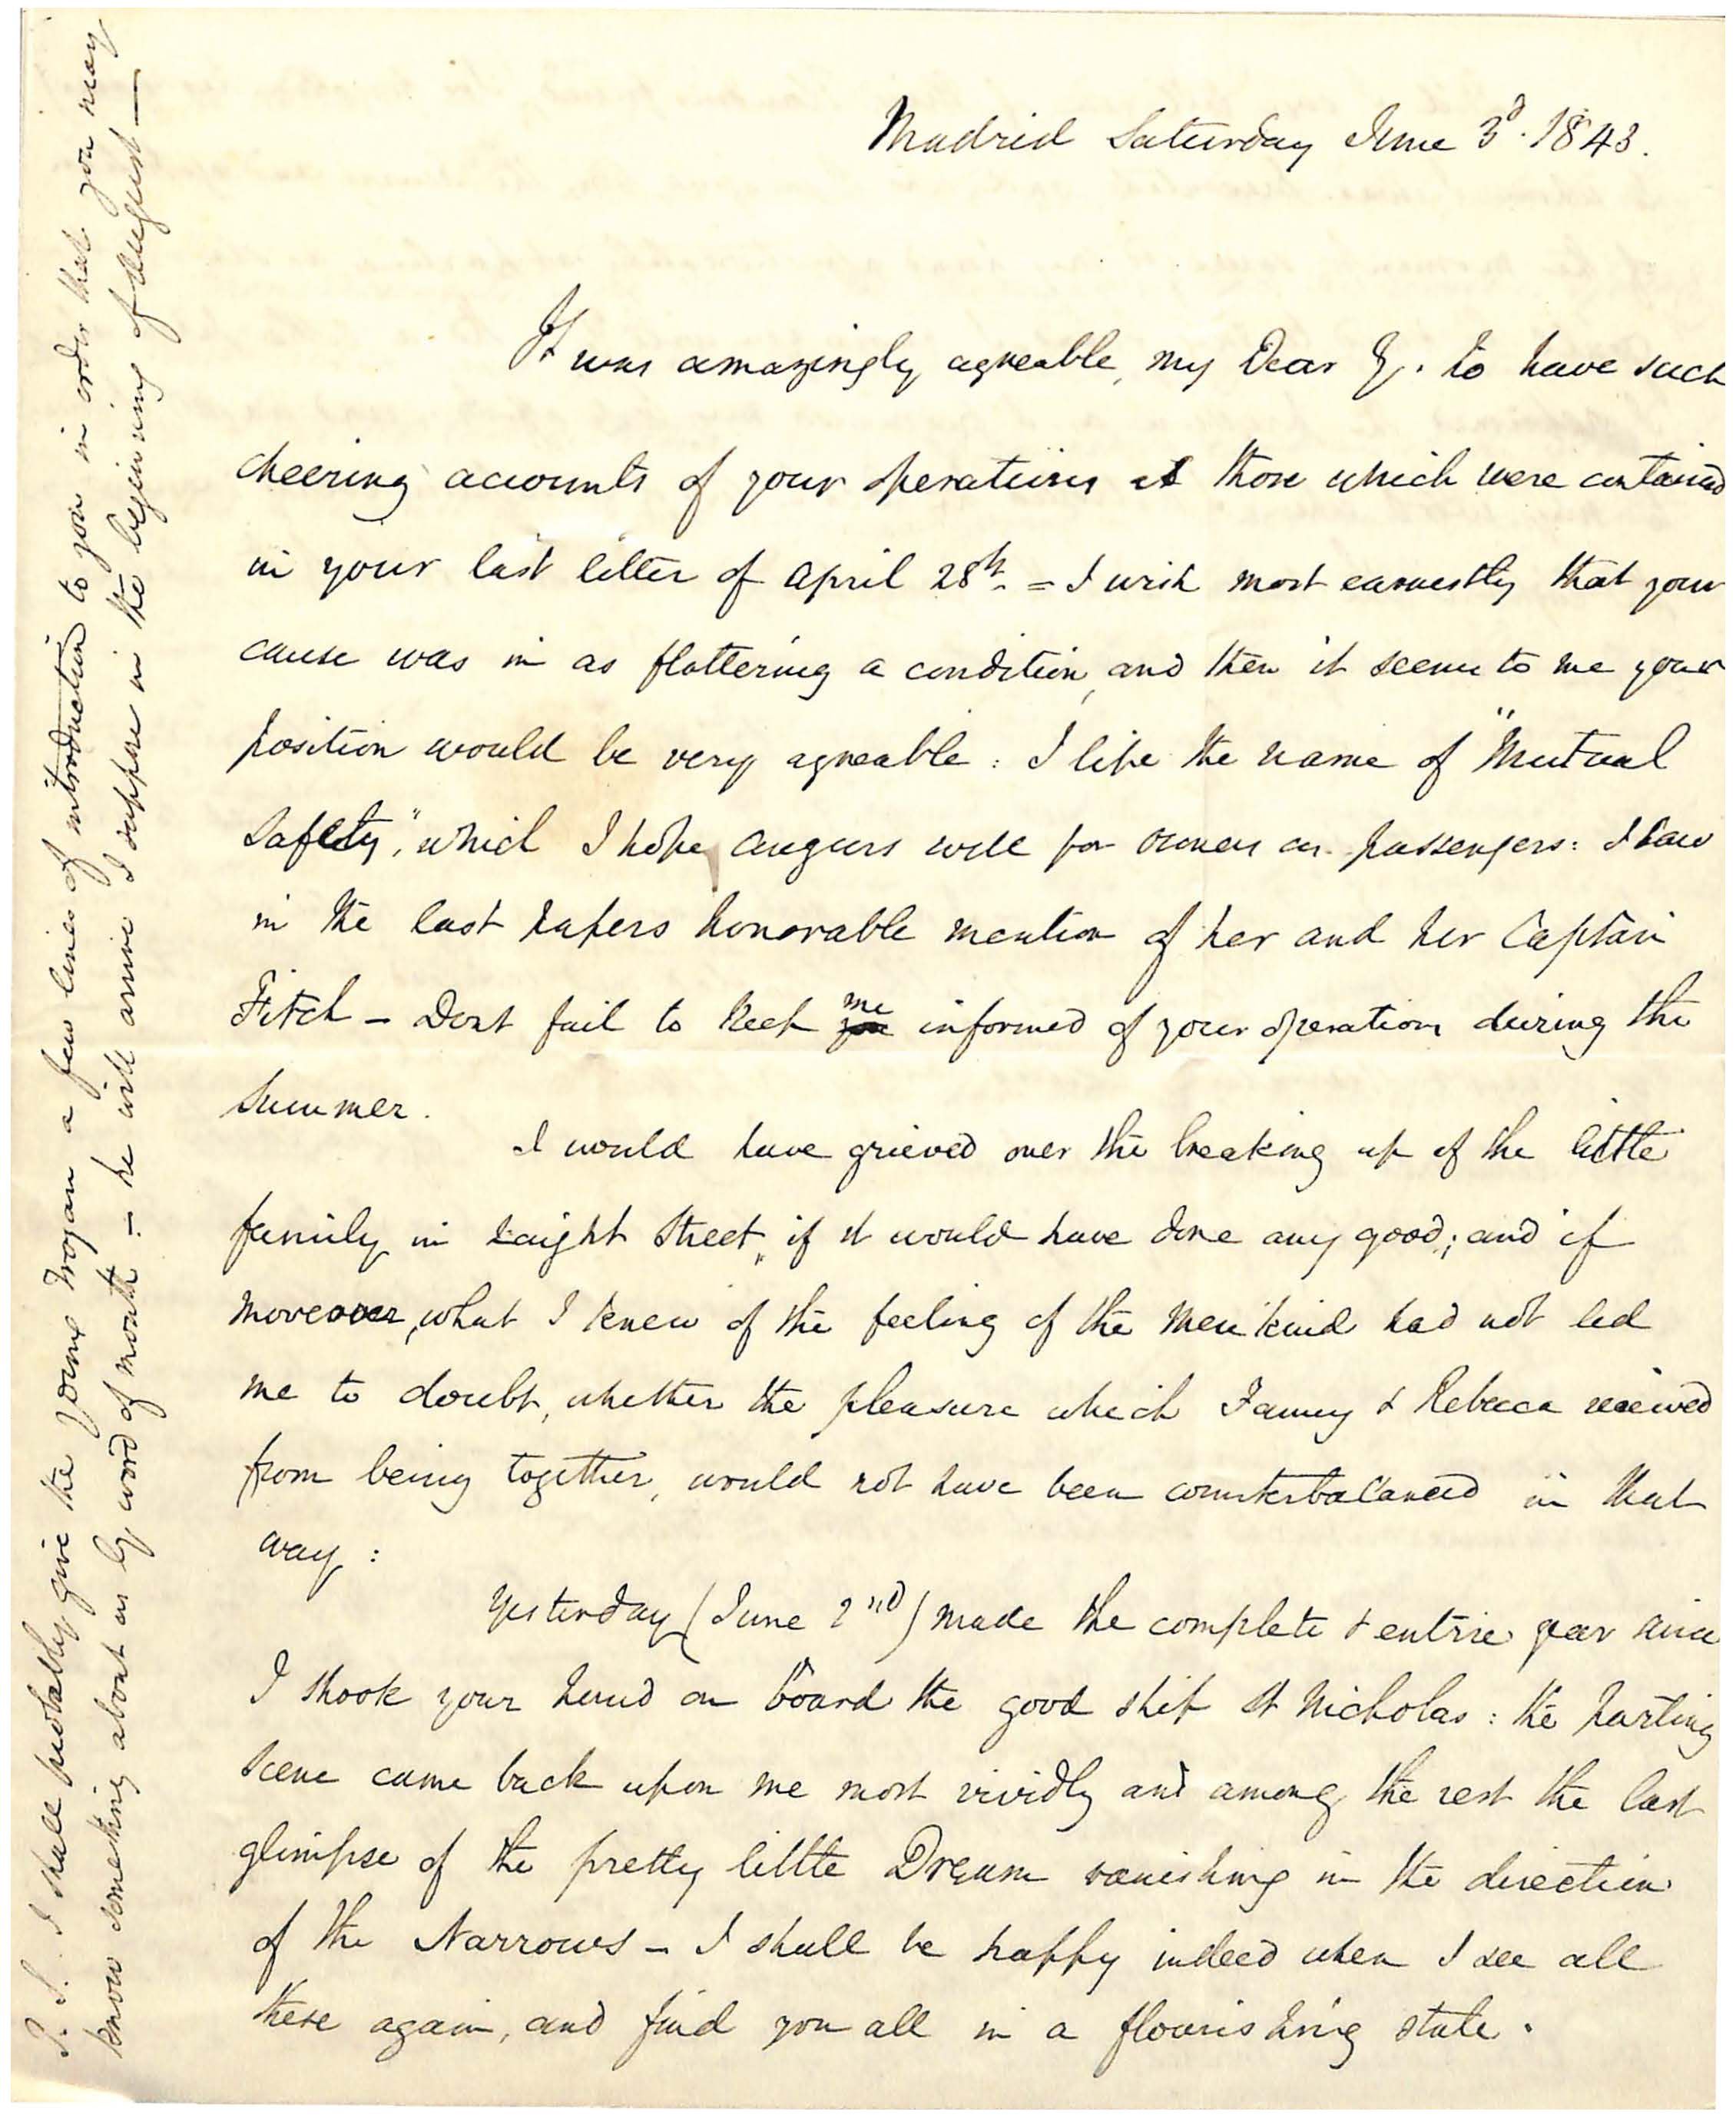 Madrid Saturday June 3d. 1843.
It was amazingly agreeable, my Dear G. to have such
cheering accounts of your operations as those which were contained
in your last letter of April 28th. = I wish most earnestly that your
cause was in as flattering a condition, and then it seems to me your
position would be very agreable : I like the name of "Mutual
Safety", which I hope augurs well for owners or passengers: I saw
in the last papers honorable mention of her and her Captain
Fitch - Dont fail to keep you me informed of your operations during the
Summer.
I would have grieved over the breaking up of the little
family in Laight Street, if it would have done any good; and if
moreover, what I knew of the feeling of the men kind had not led
me to doubt, whether the pleasure which Fanny & Rebecca received
from being together, would not have been counterbalanced in that
way :
Yesterday (June 2nd) made the complete & entire year since
I shook your hand on board the good ship St Nicholas : the parting
scene came back upon me most vividly and among the rest the last
glimpse of the pretty little Dream vanishing in the direction
of the Narrows - I shall be happy indeed when I see all
these again, and find you all in a flourishing state.
P. S. I shall probably give the young a few lines of introduction to you in order that you may
know something about us by word of mouth - he will arrive I suppose in the beginning of August —